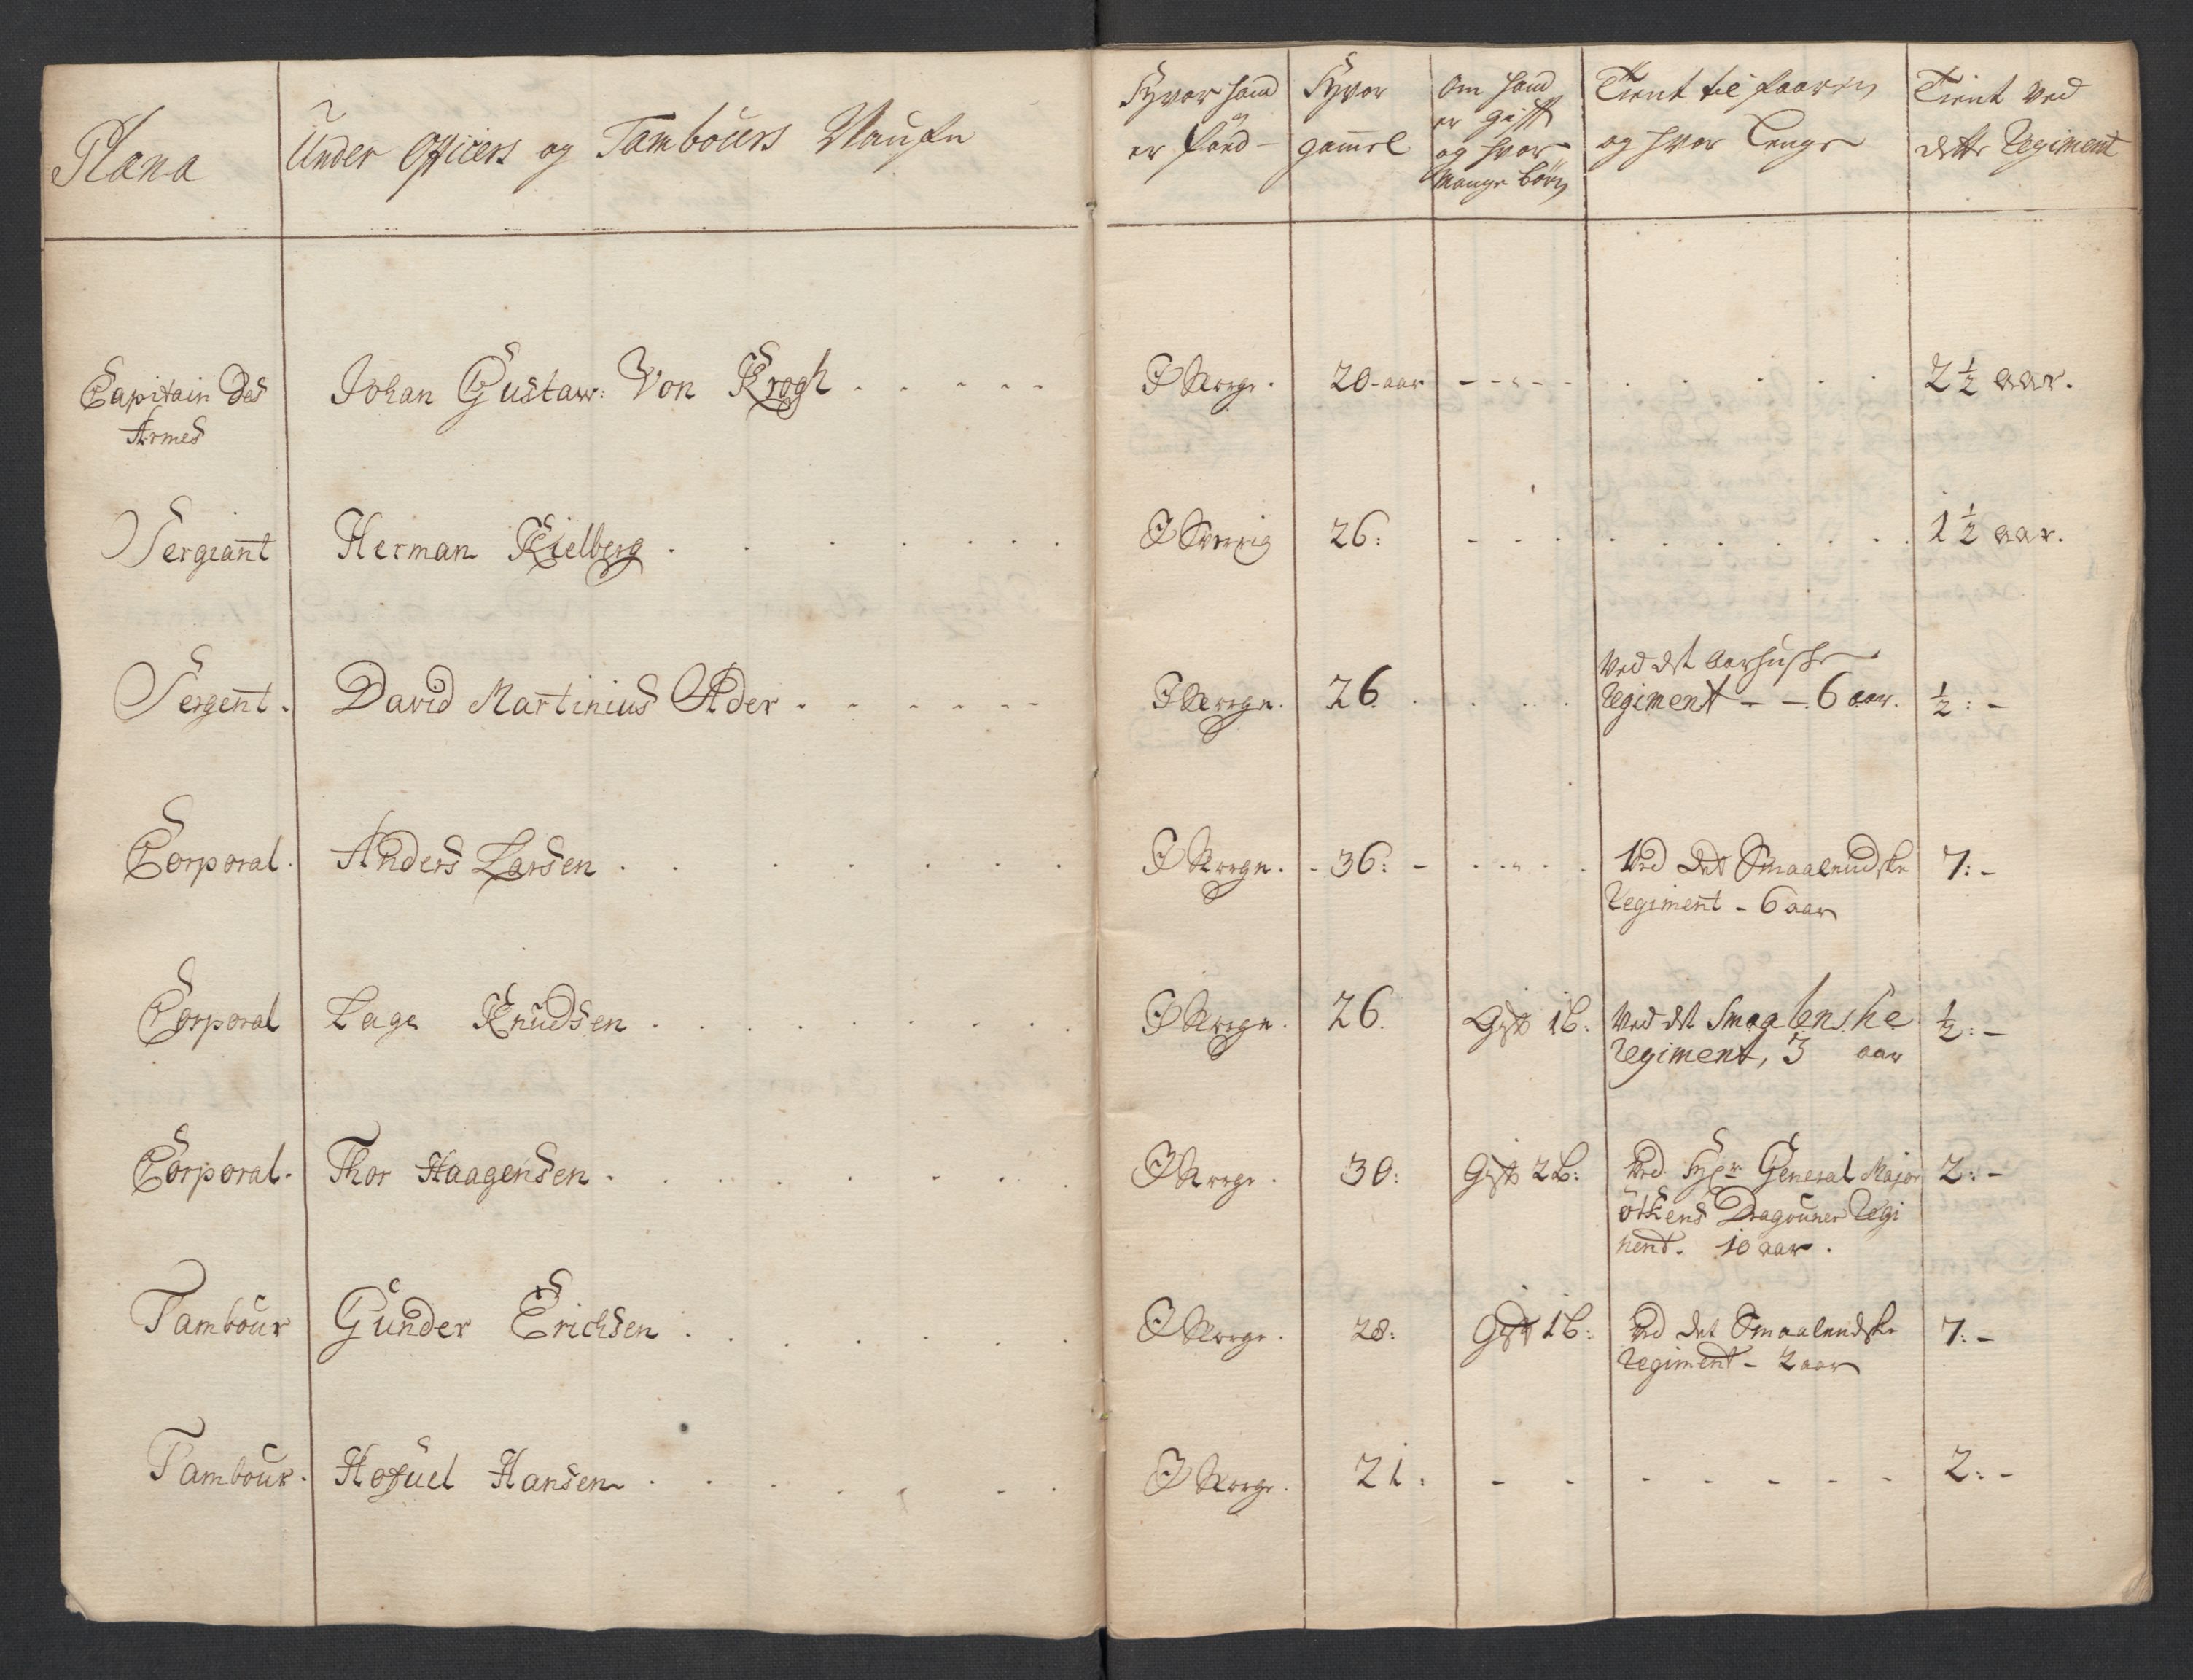 Plana
Under Officers og Tambours Naufn
Hvor hand
er föed
Hvor
gammel
Om hand
er gifft
og hvor
mange börn
Tient til faaren
og hvor lenge
Tient ved
dette Regiment
Capitain Des
Armes
Johan Gustaw: Von Krogh
I Norge.
20-aar
2 1/2 aar.
Sergiant
Herman Kielberg
I Sverrig
26:
1 1/2 aar.
Sergent.
David Martinius Ader
I Norge.
26
Ved det Aarhusske
Regiment - - 6 aar.
1/2: -
Corporal.
Anders Larsen
I Norge.
36:
Ved Det Smaalendske
Regiment - 6 aar
7: -
Corporal
Lage Knudsen
I Norge.
26.
Gift 1 b:
Ved det Smaalenske
Regiment, 3 aar
1/2: -
Corporal.
Thor Haagensen
I Norge.
30:
Gift 2 b:
Ved Hr General Major
Ötkens Dragouner Regi
ment. 10 aar.
2: -
Tambour
Gunder Erichsen
I Norge.
28:
Gift 1 b:
Ved det Smaalendske
Regiment - 2 aar
7: -
Tambour.
Hansen
I Norge.
21:
2: -